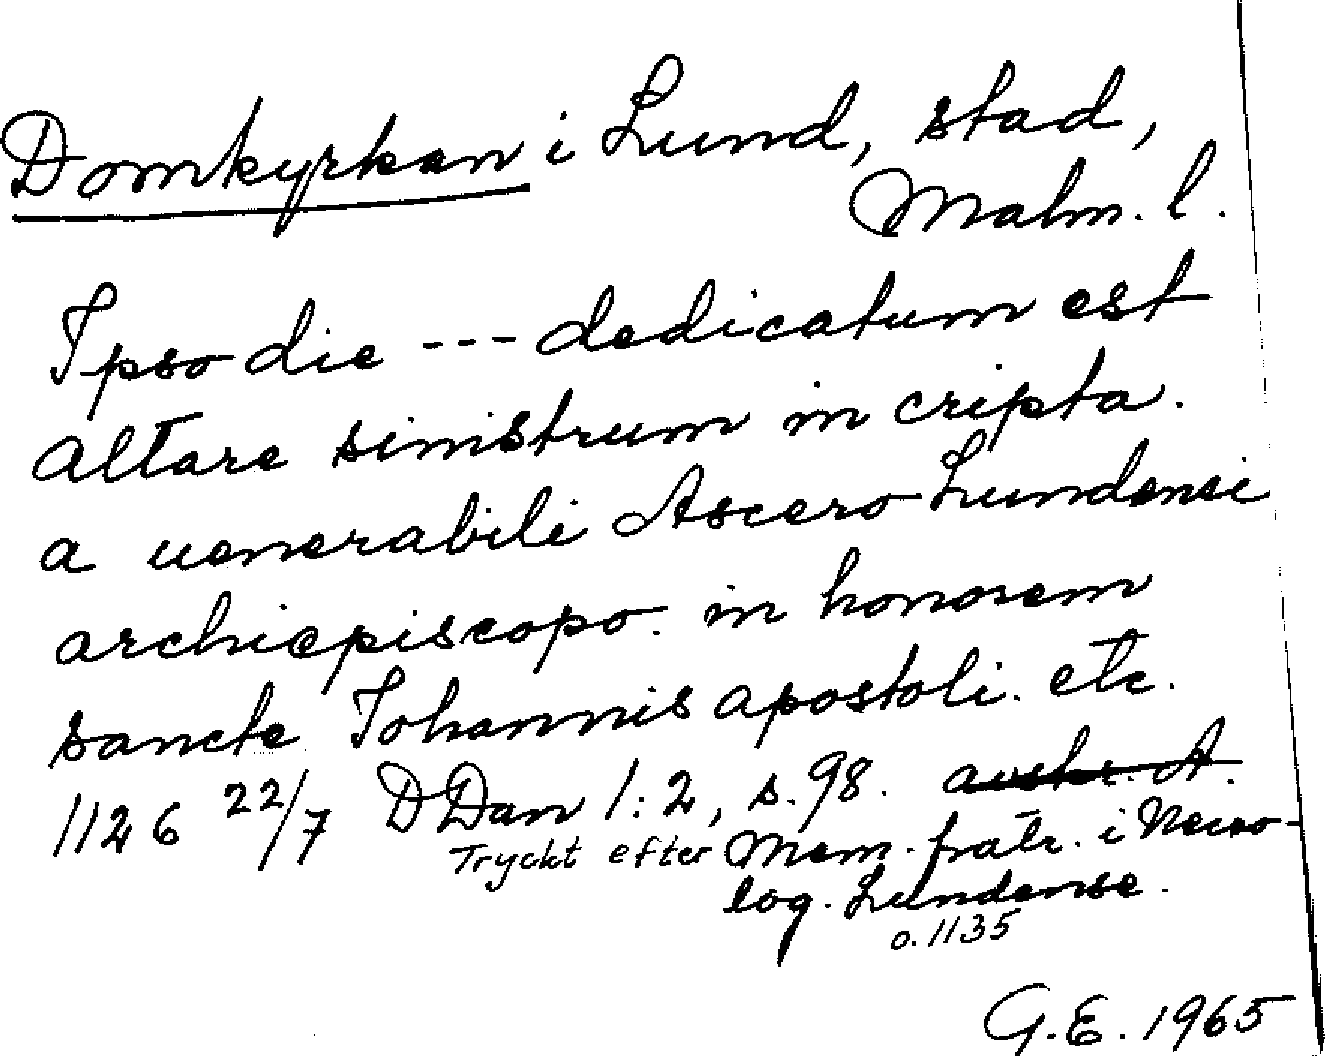 Domkyrkan i Lund, stad,
Malm. l.
Ipso die --- dedicatum est
altare sinistrum in cripta.
a uenerabili Ascero Lundensi
archiepiscopo. in honorem
sancte Iohannis apostoli. etc.
1126 22/7 DDan 1:2, s. 98. avskr. A.
Tryckt efter Mem. fratr. i Necro-
log. Lundense.
o. 1135
G.E. 1965